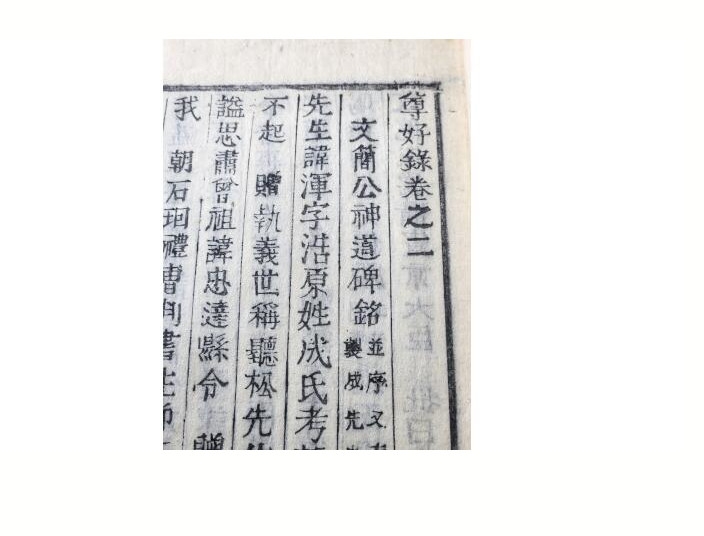 尊好錄卷之二
文簡公神道碑銘 並序又
製成先
先生諱渾字浩原姓成氏考
不起 贈執義世稱聽松先
謚思肅曾祖諱忠達縣令 贈
我 朝石珚禮曹判書